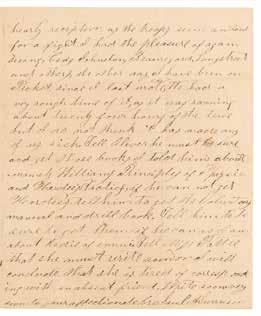 hearty reception as the troops seem anxious
for a fight I had the pleasure of again
seeing Johnston, Beauregard, Longstreet
and others the other day I have been on
Picket since I last wrote, We had a
very rough time of it, as it was raining
about twenty four hours of the time
but I do not think it has made any
of us sick Tell Oliver he must be sure
and get those books I told him about
namely Williams Principles of Physic
and Hardees Tactics if he can not get
Hardees tell him to get the Volunteers
manual and drill book. Tell him to
sure to get them if he can
about Tell Miss
that she must write soon or I will
conclude that she is tired of correspond
ing with an absent friend. Write soon very
soon to your affectionate